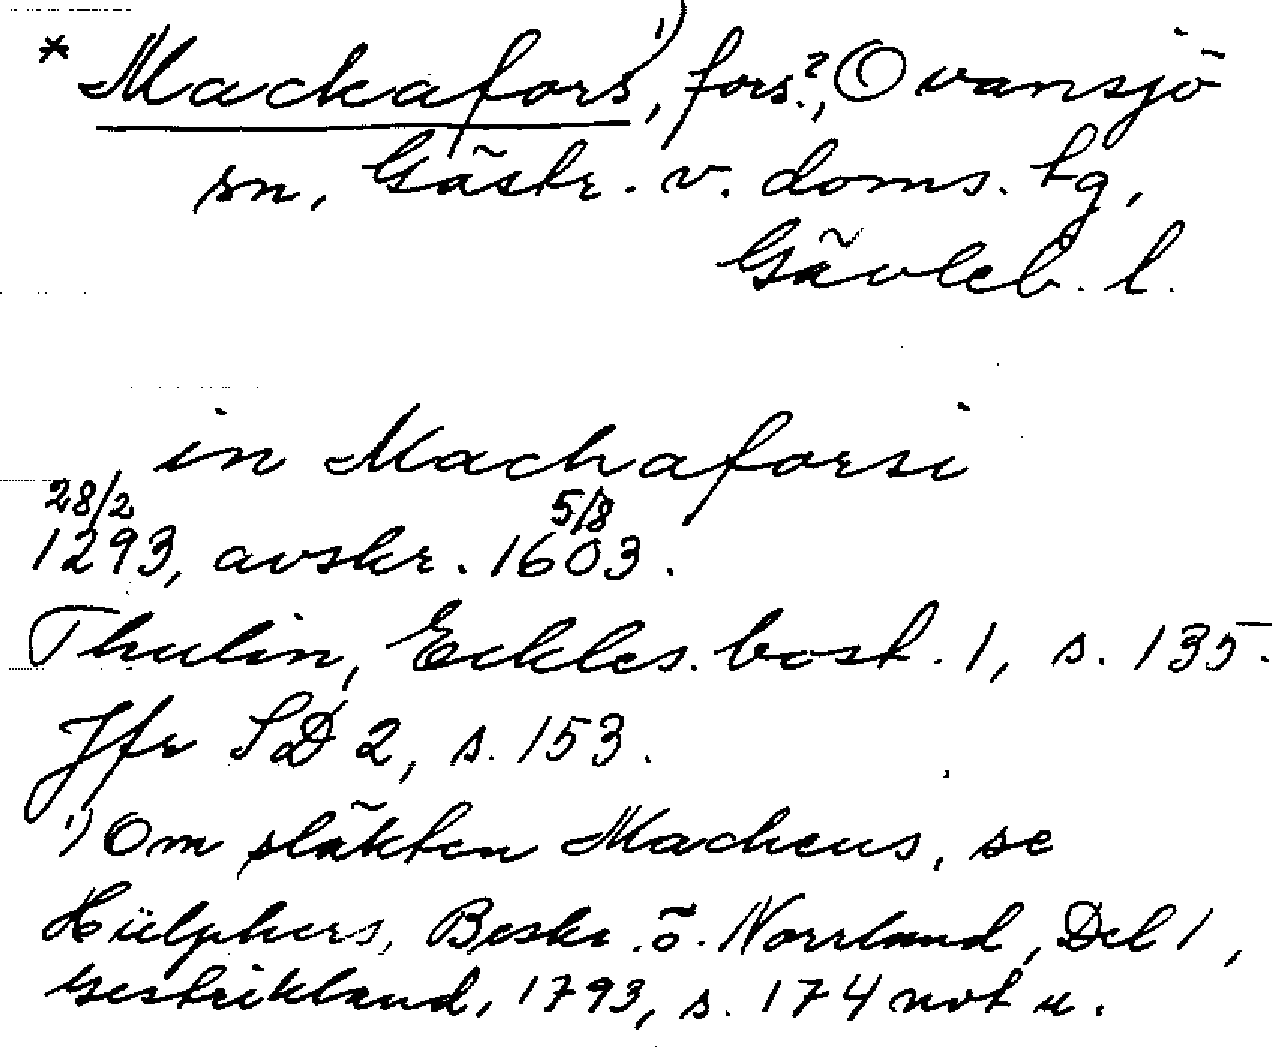 * Mackafors¹⁾, fors?, Ovansjö
sn, Gästr. v. doms. tg,
Gävleb. l.
in Machaforsi
28/2 5/8
1293, avskr. 1603.
Thulin, Eckles. bost. 1, s. 135.
Jfr SD 2, s. 153.
¹⁾ Om släkten Macheus, se
Hülphers, Beskr. ö. Norrland, Del 1,
Gestrikland, 1793, s. 174 not u.